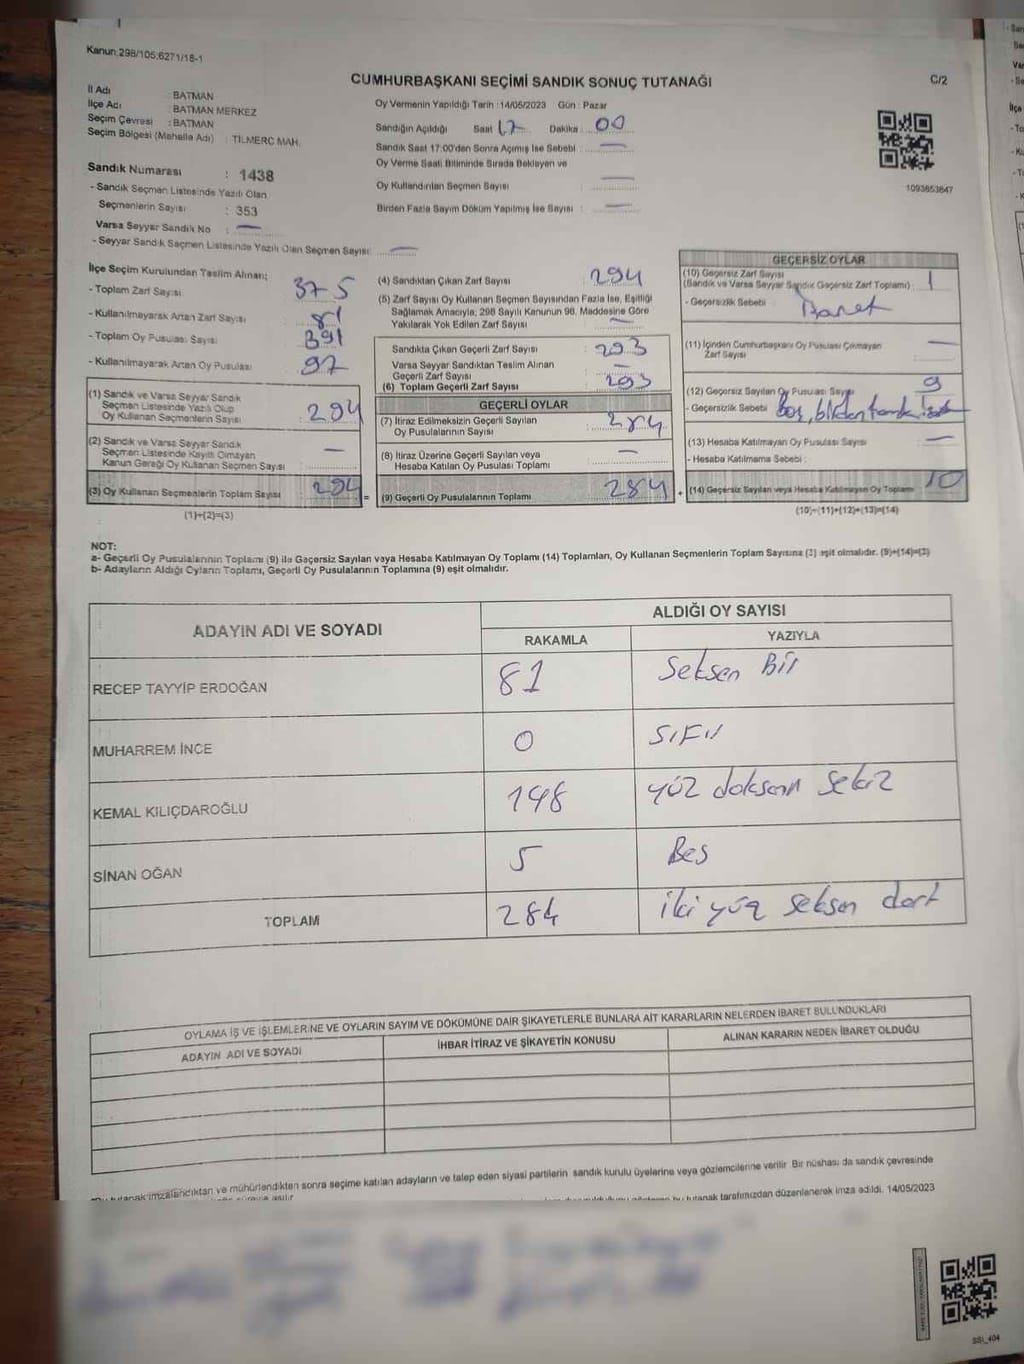 Kanun:298/105;6271/18-1
CUMHURBAŞKANI SEÇİMİ SANDIK SONUÇ TUTANAĞI
C/2
İl Adı : BATMAN
İlçe Adı : BATMAN MERKEZ
Seçim Çevresi : BATMAN
Seçim Bölgesi (Mahalle Adı) : TİLMERC MAH.
Oy Vermenin Yapıldığı Tarih :14/05/2023 Gün : Pazar
Sandığın Açıldığı Saat 17 Dakika : 00
Sandık Saat 17:00'den Sonra Açımış İse Sebebi : —
Oy Verme Saati Bitiminde Sırada Bekleyen ve
Oy Kullandırılan Seçmen Sayısı : —
Birden Fazla Sayım Döküm Yapılmış İse Sayısı : —
1093853847
Sandık Numarası : 1438
- Sandık Seçmen Listesinde Yazılı Olan
Seçmenlerin Sayısı : 353
Varsa Seyyar Sandık No : —
- Seyyar Sandık Seçmen Listesinde Yazılı Olan Seçmen Sayısı: —
İlçe Seçim Kurulundan Teslim Alınan;
- Toplam Zarf Sayısı : 375
- Kullanılmayarak Artan Zarf Sayısı : 81
- Toplam Oy Pusulası Sayısı : 391
- Kullanılmayarak Artan Oy Pusulası : 97
(1) Sandık ve Varsa Seyyar Sandık
Seçmen Listesinde Yazılı Olup
Oy Kullanan Seçmenlerin Sayısı : 294
(2) Sandık ve Varsa Seyyar Sandık
Seçmen Listesinde Kayıtlı Olmayan
Kanun Gereği Oy Kullanan Seçmen Sayısı —
(3) Oy Kullanan Seçmenlerin Toplam Sayısı 294 =
(1)+(2)=(3)
(4) Sandıktan Çıkan Zarf Sayısı : 294
(5) Zarf Sayısı Oy Kullanan Seçmen Sayısından Fazla İse, Eşitliği
Sağlamak Amacıyla, 298 Sayılı Kanunun 98. Maddesine Göre
Yakılarak Yok Edilen Zarf Sayısı : —
Sandıkta Çıkan Geçerli Zarf Sayısı : 293
Varsa Seyyar Sandıktan Teslim Alınan
Geçerli Zarf Sayısı : —
(6) Toplam Geçerli Zarf Sayısı : 293
GEÇERLİ OYLAR
(7) İtiraz Edilmeksizin Geçerli Sayılan
Oy Pusulalarının Sayısı : 284
(8) İtiraz Üzerine Geçerli Sayılan veya
Hesaba Katılan Oy Pusulası Toplamı : —
(9) Geçerli Oy Pusulalarının Toplamı : 284 +
GEÇERSİZ OYLAR
(10) Geçersiz Zarf Sayısı
(Sandık ve Varsa Seyyar Sandık Geçersiz Zarf Toplamı) : 1
- Geçersizlik Sebebi : İşaret
(11) İçinden Cumhurbaşkanı Oy Pusulası Çıkmayan
Zarf Sayısı : —
(12) Geçersiz Sayılan Oy Pusulası Sayısı : 9
- Geçersizlik Sebebi : boş, birden
(13) Hesaba Katılmayan Oy Pusulası Sayısı : —
- Hesaba Katılmama Sebebi :
(14) Geçersiz Sayılan veya Hesaba Katılmayan Oy Toplamı : 10
(10)+(11)+(12)+(13)=(14)
NOT:
a- Geçerli Oy Pusulalarının Toplamı (9) ile Geçersiz Sayılan veya Hesaba Katılmayan Oy Toplamı (14) Toplamları, Oy Kullanan Seçmenlerin Toplam Sayısına (3) eşit olmalıdır. (9)+(14)=(3)
b- Adayların Aldığı Oyların Toplamı, Geçerli Oy Pusulalarının Toplamına (9) eşit olmalıdır.
ADAYIN ADI VE SOYADI
ALDIĞI OY SAYISI
RAKAMLA YAZIYLA
RECEP TAYYİP ERDOĞAN 81 Seksen Bir
MUHARREM İNCE 0 Sıfır
KEMAL KILIÇDAROĞLU 198 yüz doksan sekiz
SİNAN OĞAN 5 Beş
TOPLAM 284 iki yüz seksen dört
OYLAMA İŞ VE İŞLEMLERİNE VE OYLARIN SAYIM VE DÖKÜMÜNE DAİR ŞİKAYETLERLE BUNLARA AİT KARARLARIN NELERDEN İBARET BULUNDUKLARI
ADAYIN ADI VE SOYADI İHBAR İTİRAZ VE ŞİKAYETİN KONUSU ALINAN KARARIN NEDEN İBARET OLDUĞU
tutanak imzalandıktan ve mühürlendikten sonra seçime katılan adayların ve talep eden siyasi partilerin sandık kurulu üyelerine veya gözlemcilerine verilir Bir nüshası da sandık çevresinde
bu tutanak tarafımızdan düzenlenerek imza edildi. 14/05/2023
SSI_404